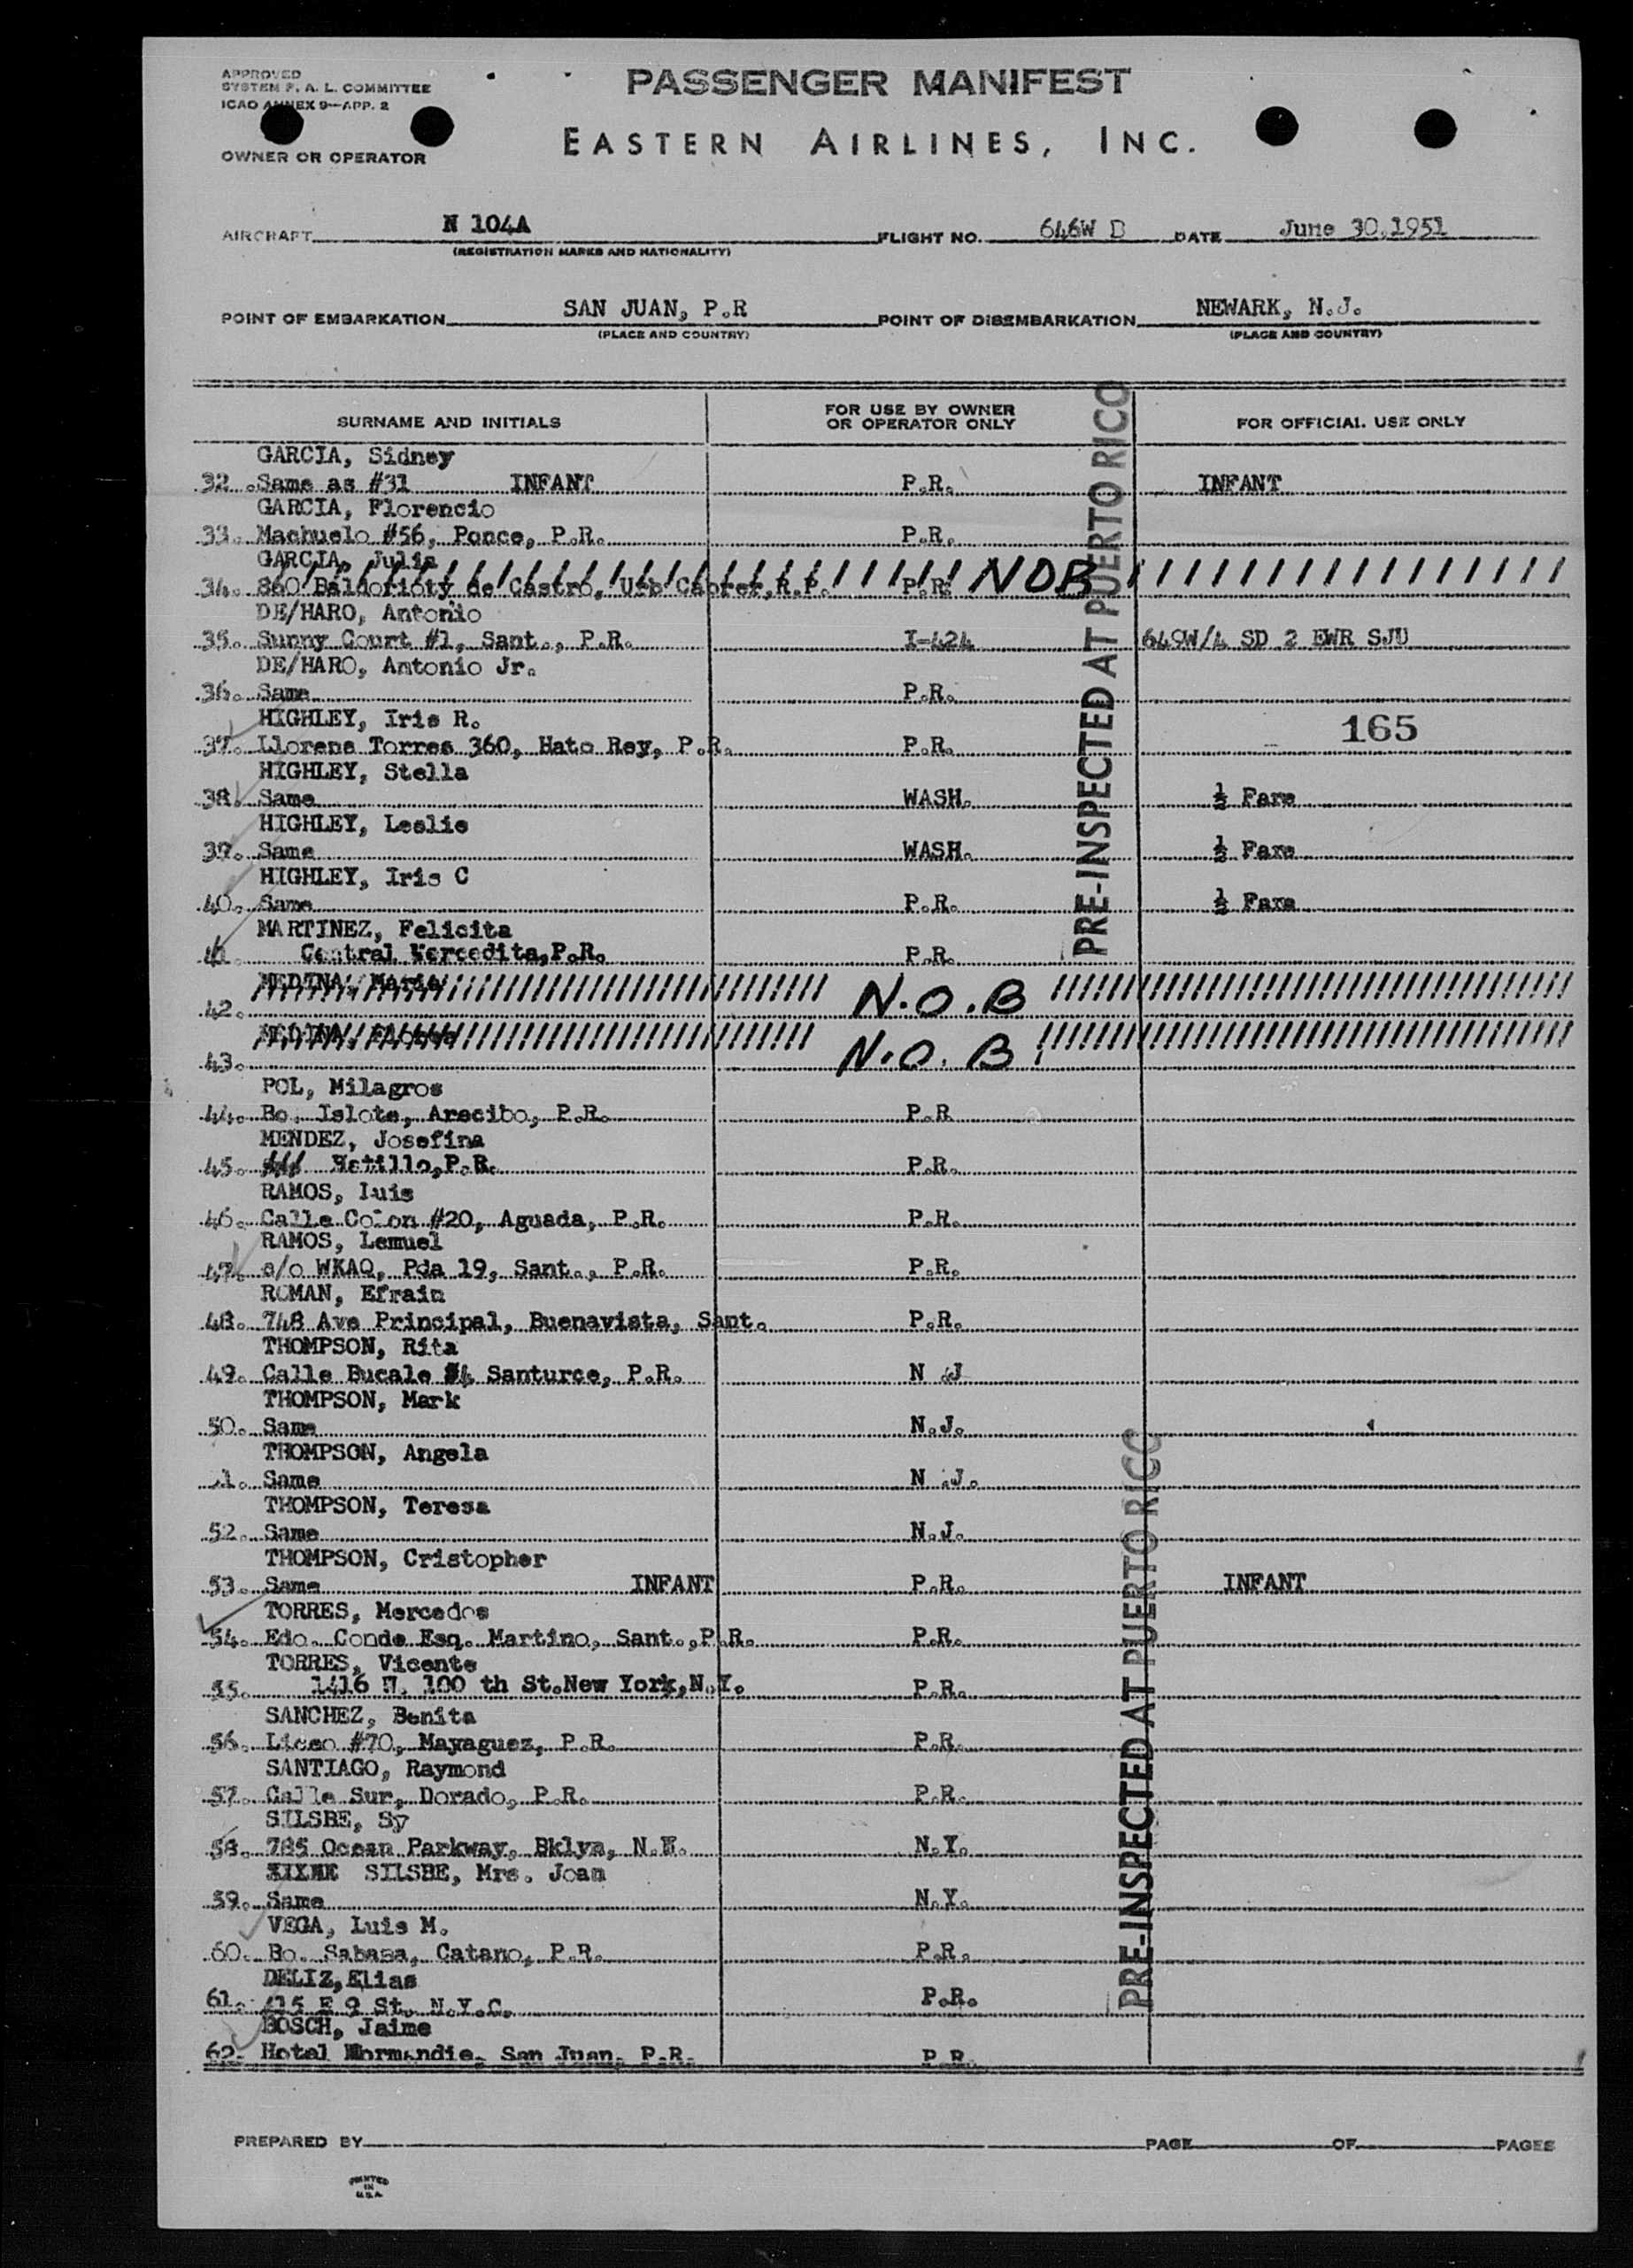 APPROVED
SYSTEM F. A. L. COMMITTEE
ICAO ANNEX 9—APP. 2
PASSENGER MANIFEST
EASTERN AIRLINES, INC.
OWNER OR OPERATOR
AIRCRAFT N 104A FLIGHT NO. 646W D DATE June 30,1951
(REGISTRATION MARKS AND NATIONALITY)
POINT OF EMBARKATION SAN JUAN, P.R POINT OF DISEMBARKATION NEWARK, N.J.
(PLACE AND COUNTRY) (PLACE AND COUNTRY)
SURNAME AND INITIALS FOR USE BY OWNER OR OPERATOR ONLY FOR OFFICIAL USE ONLY
GARCIA, Sidney
32. Same as #31 INFANT P.R. INFANT
GARCIA, Florencio
33. Machuelo #56, Ponce, P.R. P.R.
GARCIA, Julia
34. 860 Baldorioty de Castro, Urb Cabrer,R.P. P.R. NOB
DE/HARO, Antonio
35. Sunny Court #1, Sant., P.R. I-424 649W/4 SD 2 EWR SJU
DE/HARO, Antonio Jr.
36. Same P.R.
HIGHLEY, Iris R. 165
37. Llorens Torres 360, Hato Rey, P.R. P.R.
HIGHLEY, Stella
38. Same WASH. ½ Fare
HIGHLEY, Leslie
39. Same WASH. ½ Fare
HIGHLEY, Iris C
40. Same P.R. ½ Fare
MARTINEZ, Felicita
41. Central Mercedita,P.R. P.R.
MEDINA, Maria
42. N.O.B
MEDINA,
43. N.O.B
POL, Milagros
44. Bo. Islote, Arecibo, P.R. P.R
MENDEZ, Josefina
45. Hatillo,P.R. P.R.
RAMOS, Luis
46. Calle Colon #20, Aguada, P.R. P.R.
RAMOS, Lemuel
47. c/o WKAQ, Pda 19, Sant., P.R. P.R.
ROMAN, Efrain
48. 748 Ave Principal, Buenavista, Sant. P.R.
THOMPSON, Rita
49. Calle Bucale #4 Santurce, P.R. N J
THOMPSON, Mark
50. Same N.J.
THOMPSON, Angela
51. Same N .J.
THOMPSON, Teresa
52. Same N.J.
THOMPSON, Cristopher
53. Same INFANT P.R. INFANT
TORRES, Mercedes
54. Edo. Conde Esq. Martino, Sant.,P.R. P.R.
TORRES, Vicente
55. 1416 W. 100 th St.New York,N.Y. P.R.
SANCHEZ, Benita
56. Liceo #70, Mayaguez, P.R. P.R.
SANTIAGO, Raymond
57. Calle Sur, Dorado, P.R. P.R.
SILSBE, Sy
58. 785 Ocean Parkway, Bklyn, N.Y. N.Y.
SILSBE, Mrs. Joan
59. Same N.Y.
VEGA, Luis M.
60. Bo. Sabana, Catano, P.R. P.R.
DELIZ,Elias
61. 415 E 9 St. N.Y.C. P.R.
BOSCH, Jaime
62. Hotel Normandie. San Juan. P.R. P.R.
PRE-INSPECTED AT PUERTO RICO
PRE-INSPECTED AT PUERTO RICO
PREPARED BY PAGE OF PAGES
PRINTED
IN
U.S.A.